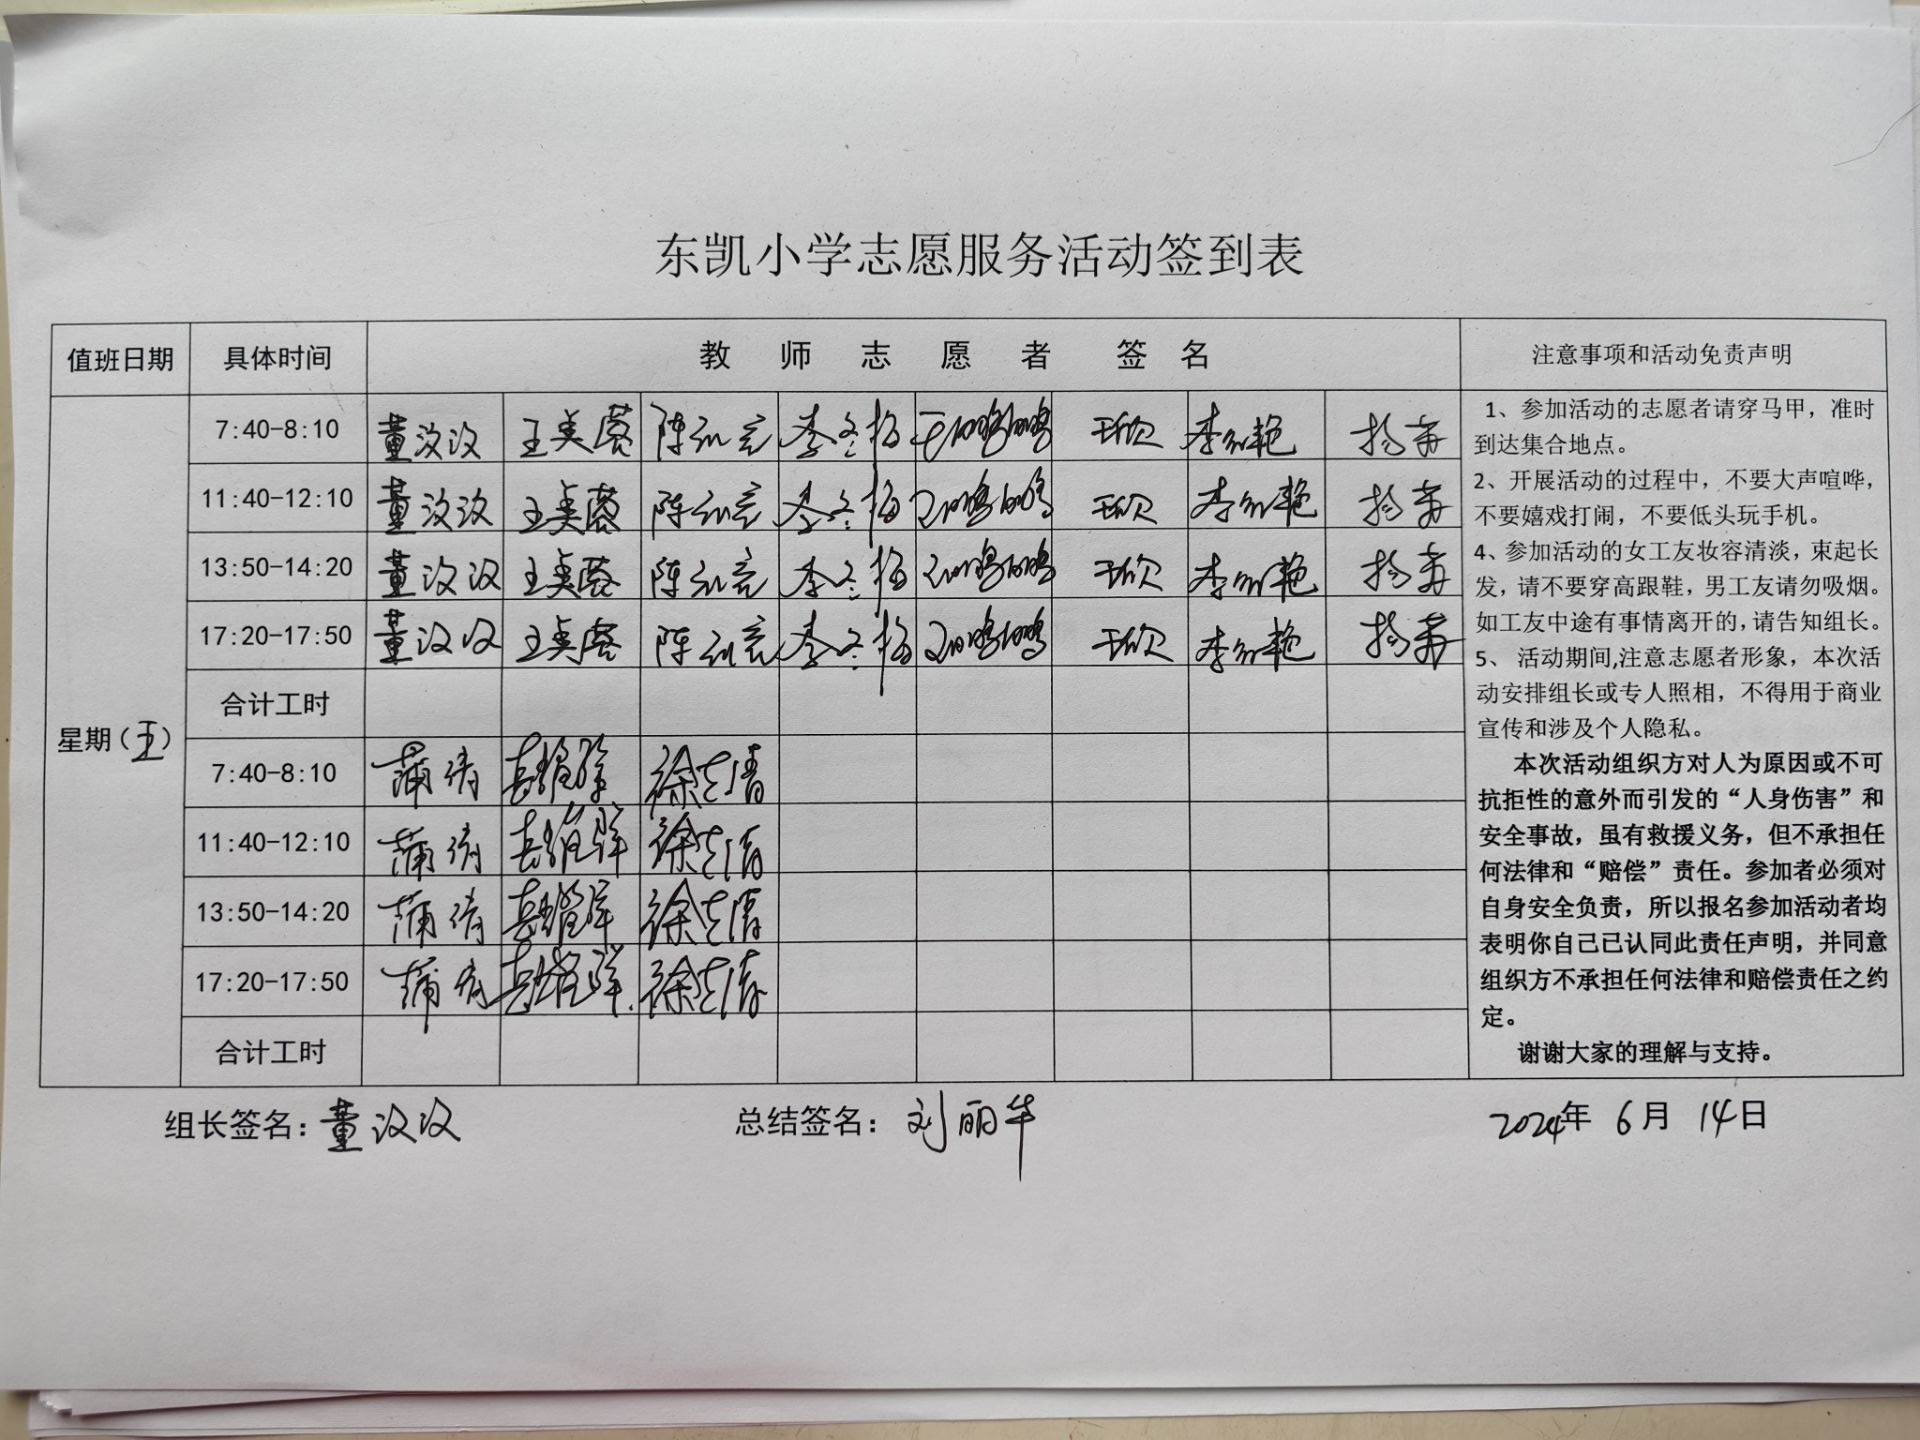 东凯小学志愿服务活动签到表
值班日期 具体时间 教师志愿者签名 注意事项和活动免责声明
星期(五)
7:40-8:10 董汝汝 王美蓉 李冬梅 王鹏鹏 李红艳 杨
11:40-12:10 董汝汝 王美蓉 李冬梅 王鹏鹏 李红艳 杨
13:50-14:20 董汝汝 王美蓉 李冬梅 王鹏鹏 李红艳 杨
17:20-17:50 董汝汝 王美蓉 李冬梅 王鹏鹏 李红艳 杨
合计工时
7:40-8:10 蒲清 徐志清
11:40-12:10 蒲清 徐志清
13:50-14:20 蒲清 徐志清
17:20-17:50 蒲清 徐志清
合计工时
1、参加活动的志愿者请穿马甲，准时
到达集合地点。
2、开展活动的过程中，不要大声喧哗，
不要嬉戏打闹，不要低头玩手机。
4、参加活动的女工友妆容清淡，束起长
发，请不要穿高跟鞋，男工友请勿吸烟。
如工友中途有事情离开的，请告知组长。
5、 活动期间,注意志愿者形象，本次活
动安排组长或专人照相，不得用于商业
宣传和涉及个人隐私。
本次活动组织方对人为原因或不可
抗拒性的意外而引发的“人身伤害”和
安全事故，虽有救援义务，但不承担任
何法律和“赔偿”责任。参加者必须对
自身安全负责，所以报名参加活动者均
表明你自己已认同此责任声明，并同意
组织方不承担任何法律和赔偿责任之约
定。
谢谢大家的理解与支持。
组长签名：董汝汝 总结签名：刘丽华 2024年 6月 14日